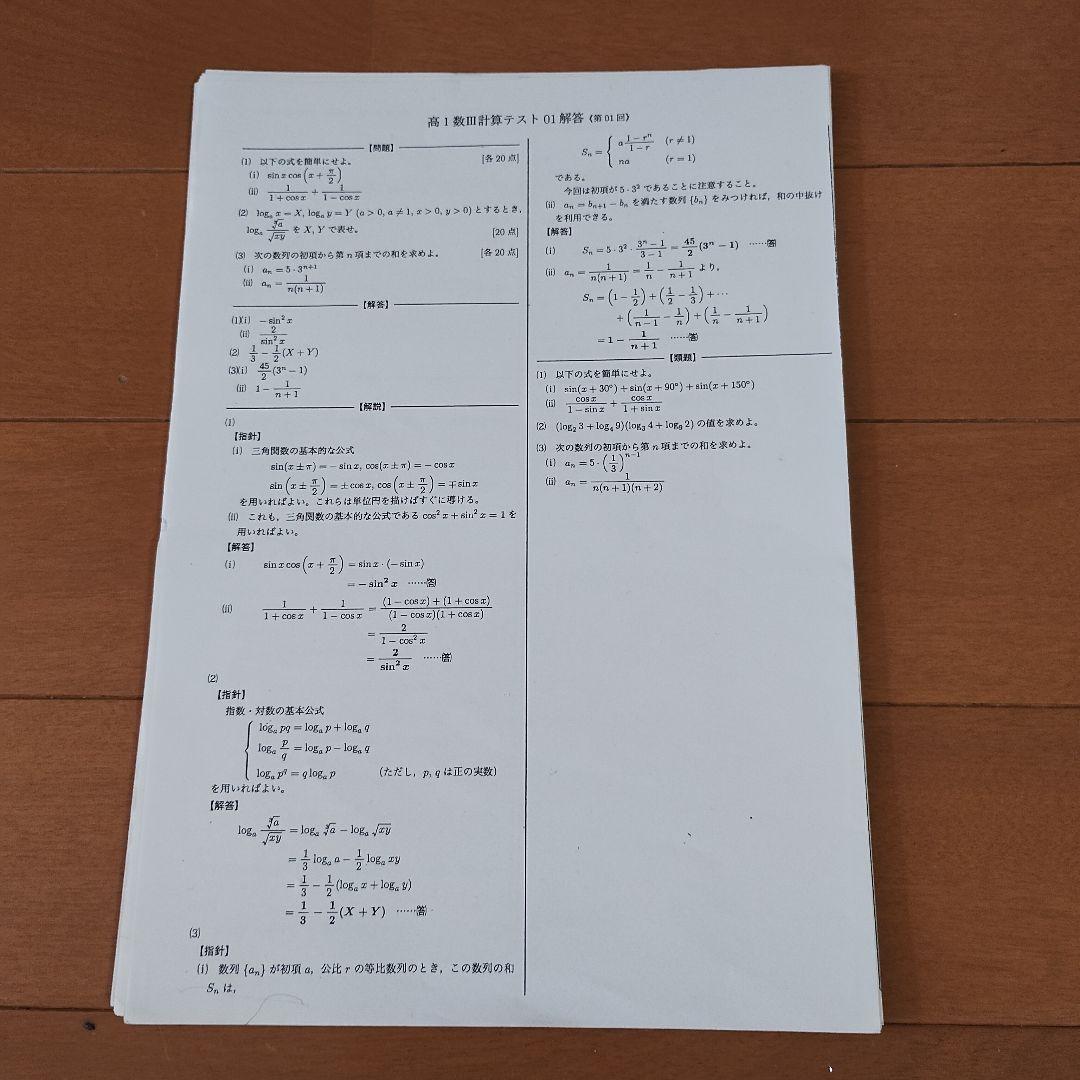 高1数Ⅲ計算テスト01解答《第01回》
【問題】
(1) 以下の式を簡単にせよ。 [各20点]
(i) sin x cos(x + π/2)
(ii) 1/(1+cos x) + 1/(1−cos x)
(2) logₐ x = X, logₐ y = Y (a > 0, a ≠ 1, x > 0, y > 0) とするとき,
logₐ ∛a/√xy を X, Y で表せ。 [20点]
(3) 次の数列の初項から第 n 項までの和を求めよ。 [各20点]
(i) aₙ = 5・3ⁿ⁺¹
(ii) aₙ = 1/n(n+1)
【解答】
(1)(i) −sin² x
(ii) 2/sin² x
(2) 1/3 − 1/2(X+Y)
(3)(i) 45/2(3ⁿ − 1)
(ii) 1 − 1/(n+1)
【解説】
(1)
【指針】
(i) 三角関数の基本的な公式
sin(x ± π) = − sin x, cos(x ± π) = − cos x
sin(x ± π/2) = ± cos x, cos(x ± π/2) = ∓ sin x
を用いればよい。これらは単位円を描けばすぐに導ける。
(ii) これも,三角関数の基本的な公式である cos² x + sin² x = 1 を
用いればよい。
【解答】
(i) sin x cos(x + π/2) = sin x・(− sin x)
= − sin² x ……答
(ii) 1/(1+cos x) + 1/(1−cos x) = ((1−cos x)+(1+cos x))/((1−cos x)(1+cos x))
= 2/(1−cos² x)
= 2/sin² x ……答
(2)
【指針】
指数・対数の基本公式
logₐ pq = logₐ p + logₐ q
logₐ p/q = logₐ p − logₐ q
logₐ p^q = q logₐ p (ただし, p, q は正の実数)
を用いればよい。
【解答】
logₐ ∛a/√xy = logₐ ∛a − logₐ √xy
= 1/3 logₐ a − 1/2 logₐ xy
= 1/3 − 1/2(logₐ x + logₐ y)
= 1/3 − 1/2(X + Y) ……答
(3)
【指針】
(i) 数列 {aₙ} が初項 a, 公比 r の等比数列のとき,この数列の和
Sₙ は,
Sₙ = { a(1−rⁿ)/(1−r) (r ≠ 1)
na (r = 1)
である。
今回は初項が 5・3² であることに注意すること。
(ii) aₙ = bₙ₊₁ − bₙ を満たす数列 {bₙ} をみつければ,和の中抜け
を利用できる。
【解答】
(i) Sₙ = 5・3²・(3ⁿ−1)/(3−1) = 45/2(3ⁿ − 1) ……答
(ii) aₙ = 1/n(n+1) = 1/n − 1/(n+1) より,
Sₙ = (1 − 1/2) + (1/2 − 1/3) + …
+ (1/(n−1) − 1/n) + (1/n − 1/(n+1))
= 1 − 1/(n+1) ……答
【類題】
(1) 以下の式を簡単にせよ。
(i) sin(x + 30°) + sin(x + 90°) + sin(x + 150°)
(ii) cos x/(1−sin x) + cos x/(1+sin x)
(2) (log₂ 3 + log₄ 9)(log₃ 4 + log₉ 2) の値を求めよ。
(3) 次の数列の初項から第 n 項までの和を求めよ。
(i) aₙ = 5・(1/3)ⁿ⁻¹
(ii) aₙ = 1/n(n+1)(n+2)